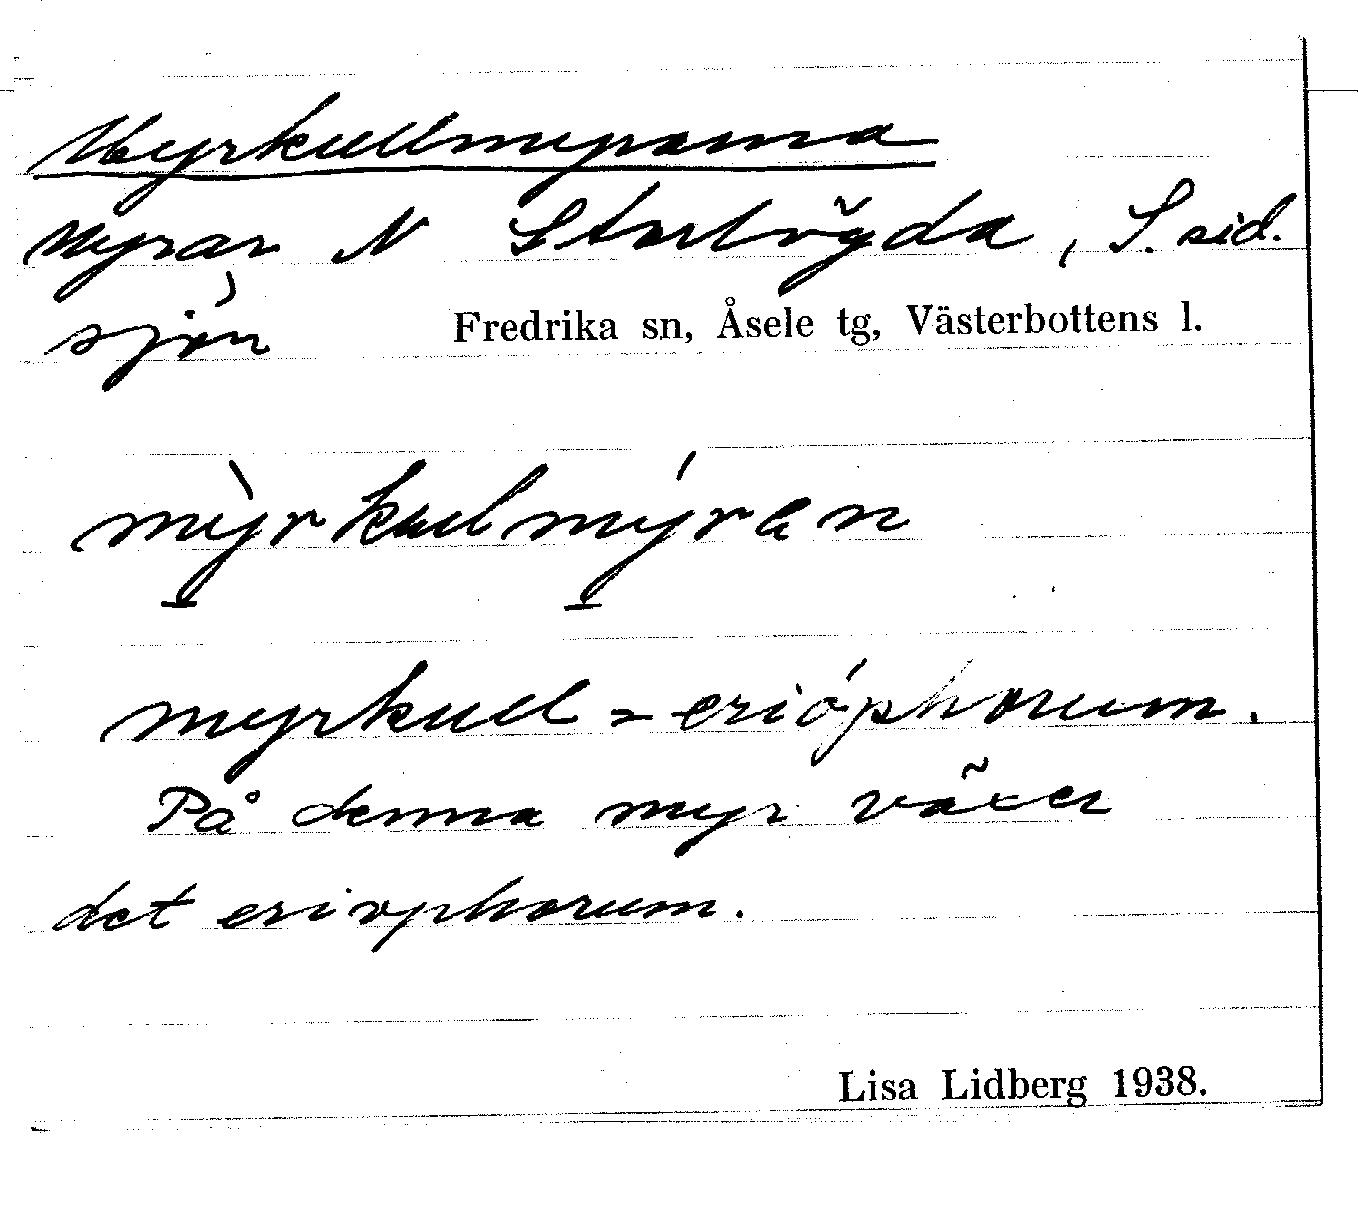 Myrkullmyrarna
Myrar N Storbögda, S. sid.
sjön
Fredrika sn, Åsele tg, Västerbottens l.
mỳrkulmýran
myrkull = erióphorum.
På denna myr växer
det eriophorum.
Lisa Lidberg 1938.